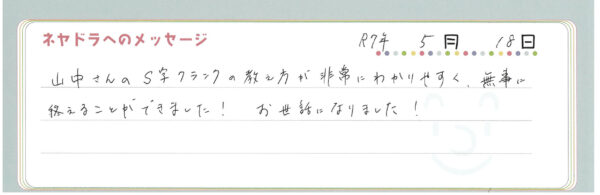 ネヤドラへのメッセージ R7年 5月 18日
山中さんのS字クランクの教え方が非常にわかりやすく、無事に
終えることができました! お世話になりました!